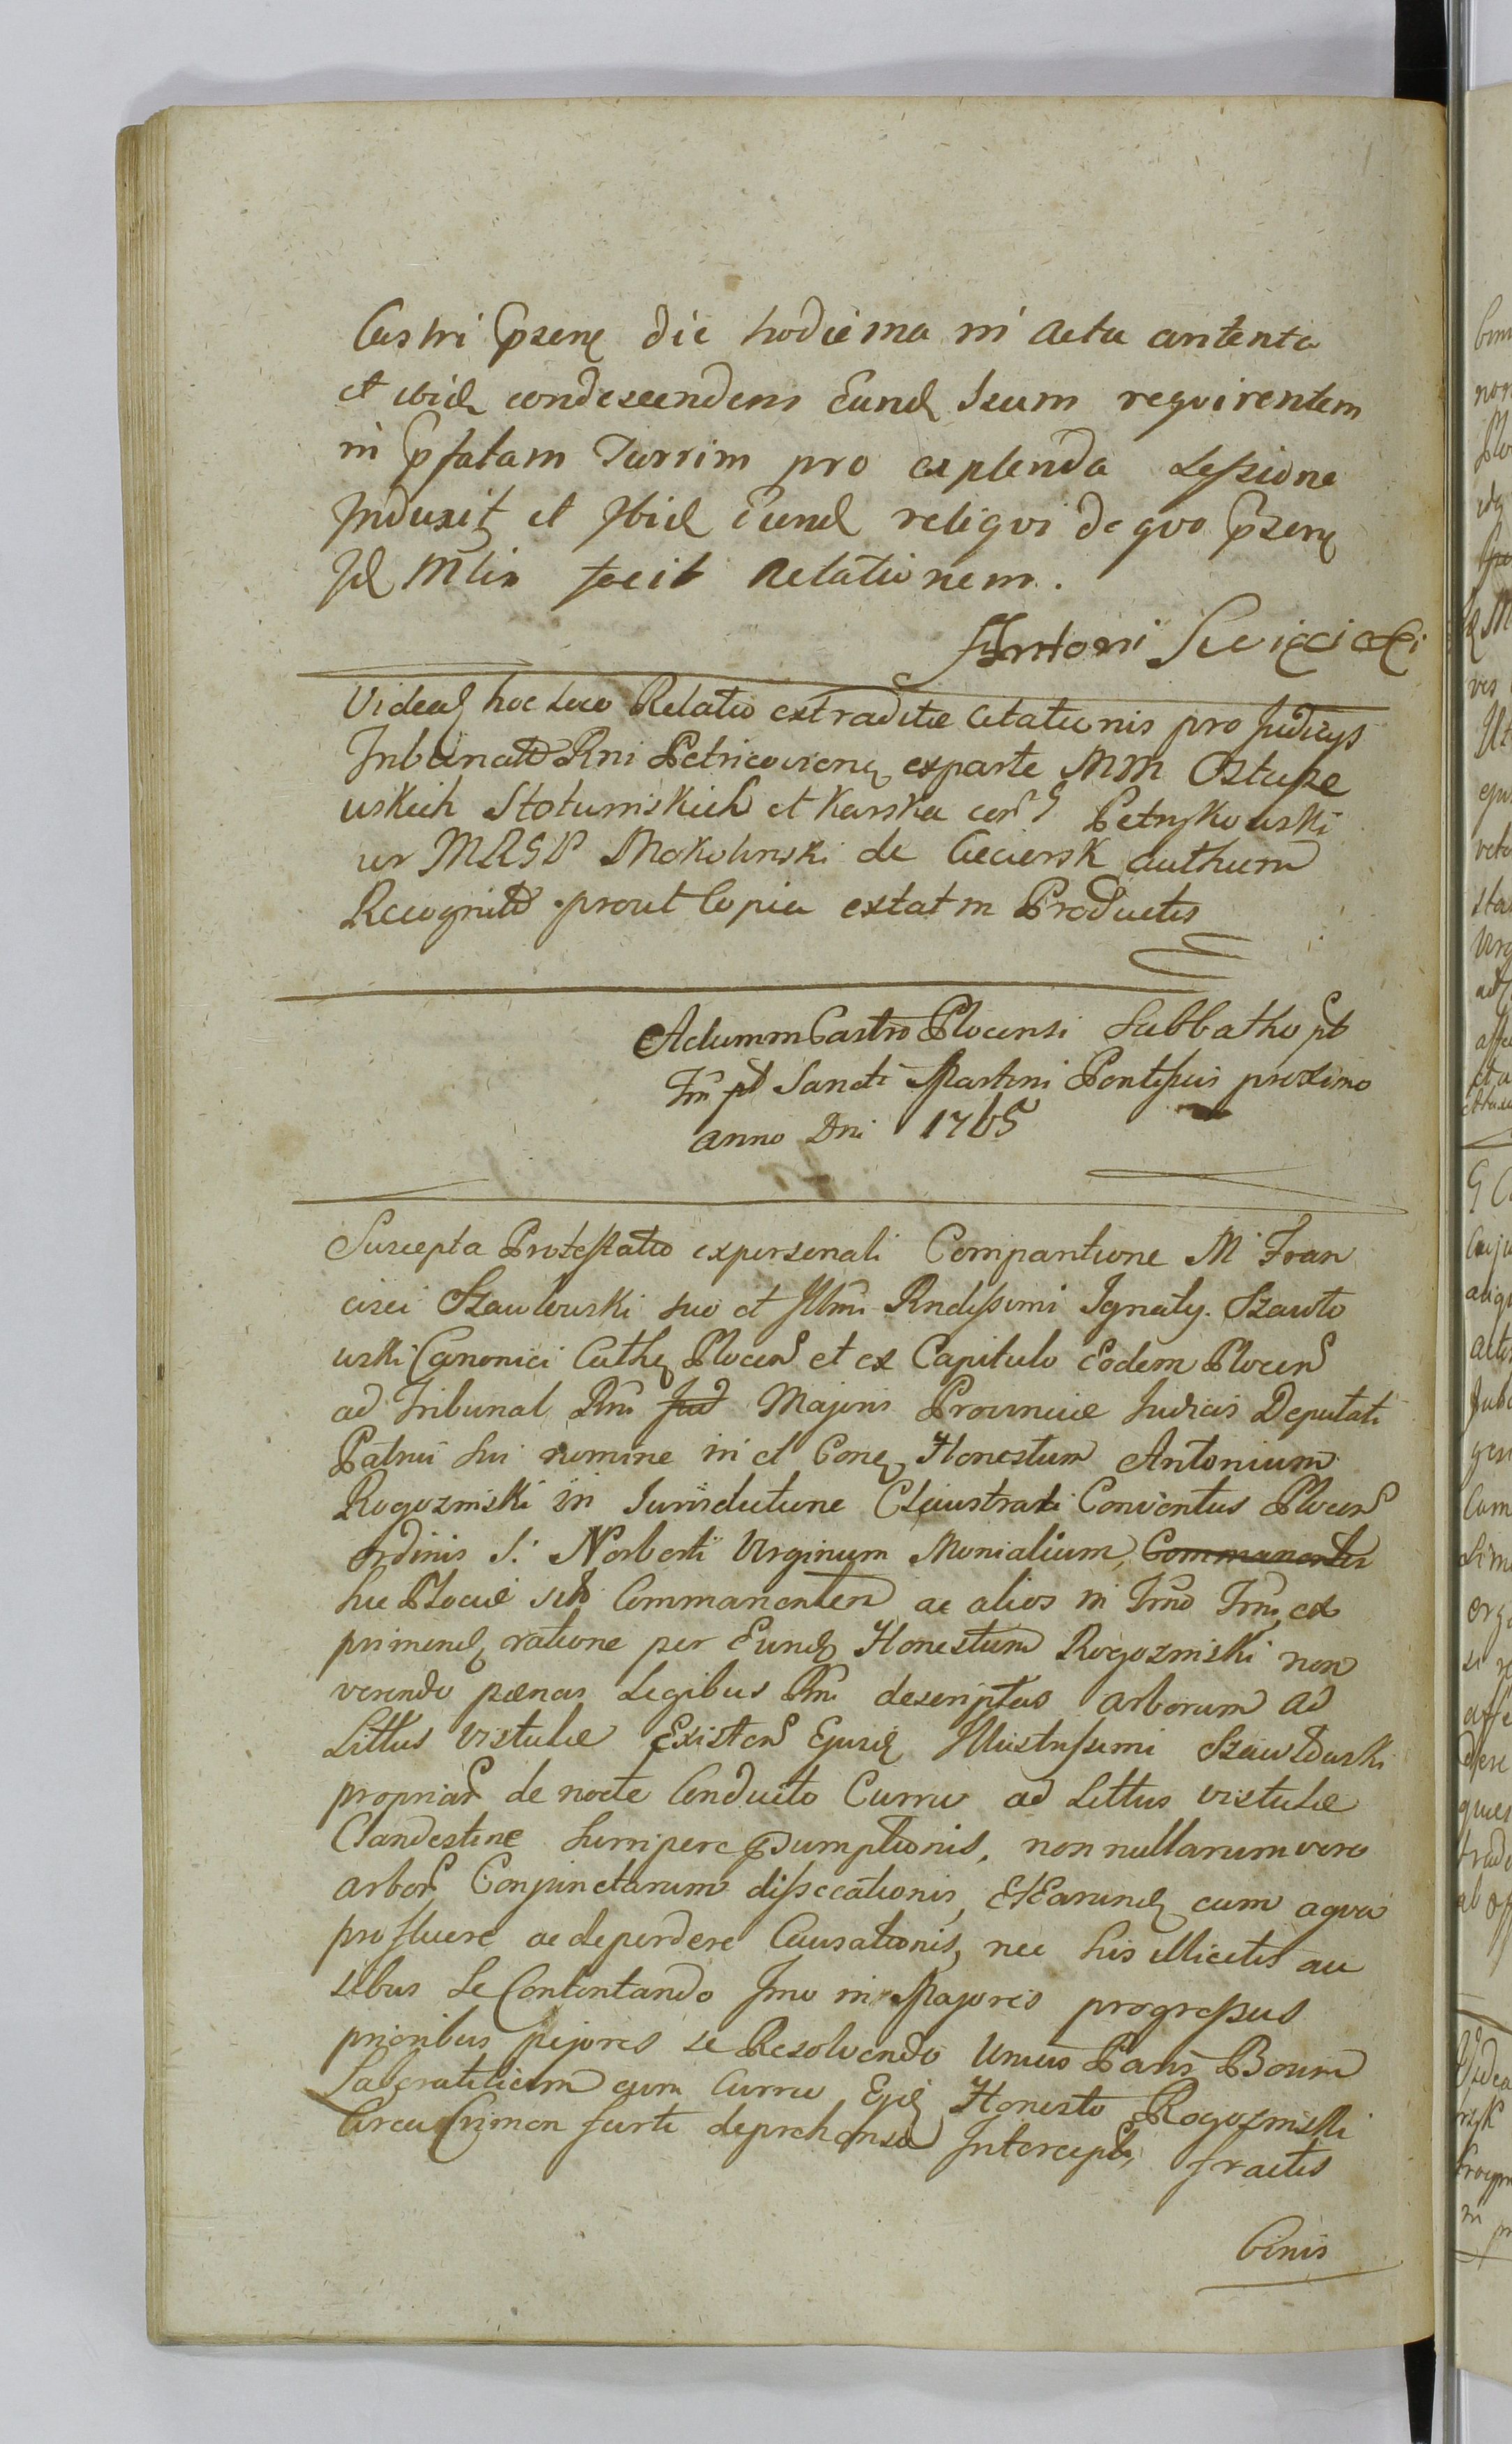 Castri prsens die hodierna in actu antento
et ibid condescendens Eund suum requirentem
in pfatam Turrim pro explenda Sessione
Induxit et Ibid Eund reliqui de quo prsens
Id Mlis fecit Relationem.
Antoni
Videas hoc loco Relatio extraditae Citationis pro Judicys
Tribunatt Rni Petricoviens exparte MM
uskich et Karska con Petrykowski
MRSP Mokolinski de Cieciersk authum
Recognitt prout Copia extat in Productis
Actum in Castro Plocensi Sabbatho pt
Fm pt Sancti Martini Pontificis proximo
anno Dni 1765
Suscepta Protestatio expersonali Comparitione M Fran
cisci Szawlowski suo et Illmi Rndissimi Ignaty Szawlo
wski Canonici Cathe Plocen et ex Capitulo Eodem Plocen
ad Tribunal Rni Jud Majoris Provinciae Judicis Deputati
Patrui sui nomine in et Cone Honestum Antonium
Rogozinski in Jurisdictione Claustrali Conventus Plocen
ordinis S. Norberti Virginum Monialium, Commanenten
hic Plociae sitt Commanenten ac alios in Imo Imi, ex
primend ratione per Eund Honestum Rogozinski non
verendo paenas Legibus Rni descriptas arborum ad
Littus Vistulae Existen Ejusd Illustrissimi Szawlowski
propriar de nocte Conducto Curru ad Littus vistulae
Clandestine surripere psumptionis, non nullarum vero
arbor Conjunctarum dissecationis, Et Earund cum aqua
profluere ac deperdere Causationis, nec his illicitis au
sibus se Contentando Imo in Majores progressus
prioribus pejores se Resolvendo Unius Paris Boum
cum Curru Ejd Honesto Rogozinski
Circa Crimen furti deprehenso Intercepti, fractis
binis